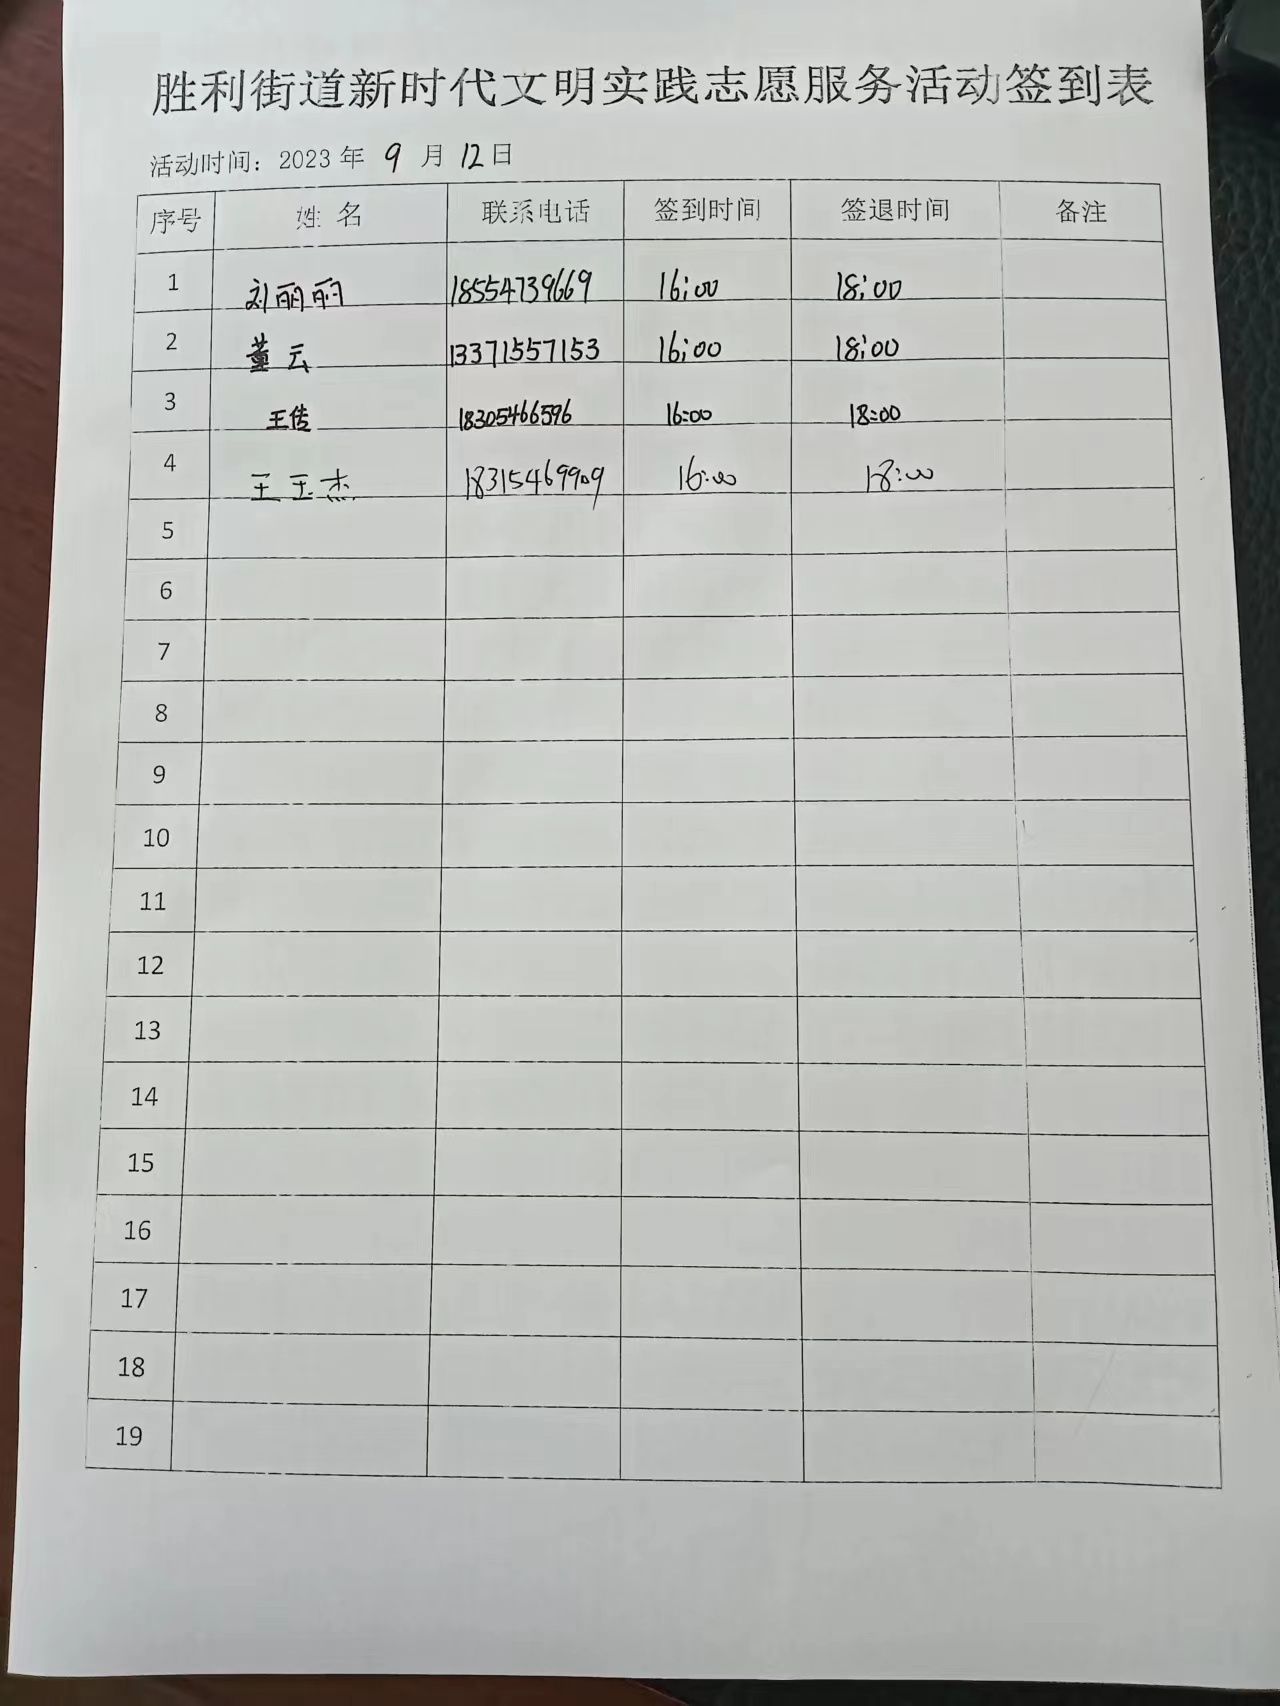 胜利街道新时代文明实践志愿服务活动签到表
活动时间：2023 年 9 月 12 日
序号 姓 名 联系电话 签到时间 签退时间 备注
1 刘丽丽 18554739669 16:00 18:00
2 董云 13371557153 16:00 18:00
3 王传 18305466596 16:00 18:00
4 王玉杰 18315469909 16:00 18:00
5
6
7
8
9
10
11
12
13
14
15
16
17
18
19